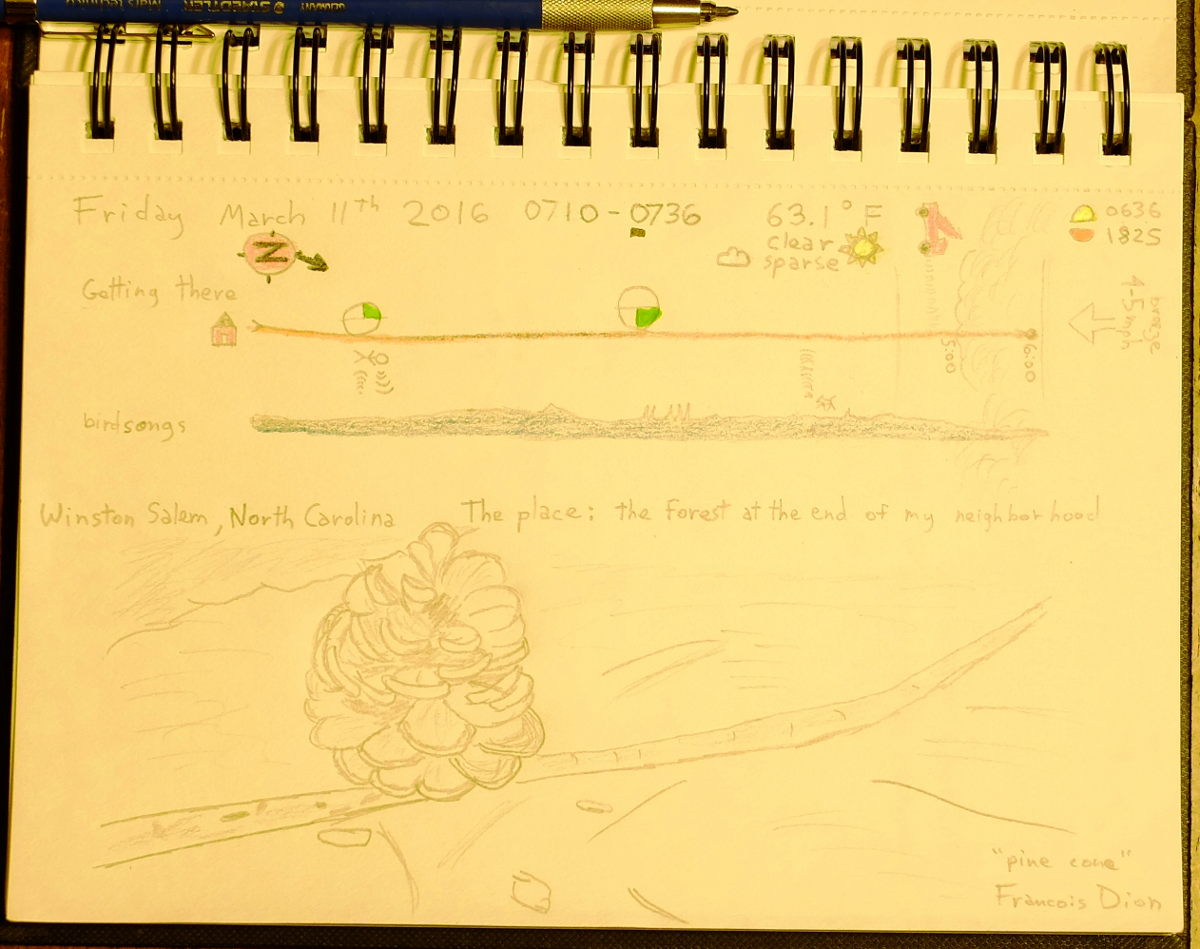 STAEDTLER Mars technico GERMANY
Friday March 11th 2016 0710-0736 63.1° F
0636
1825
clear
sparse
N
Getting there
breeze
4-5 mph
5:00
6:00
birdsongs
Winston Salem, North Carolina The place: the forest at the end of my neighborhood
"pine cone"
Francois Dion